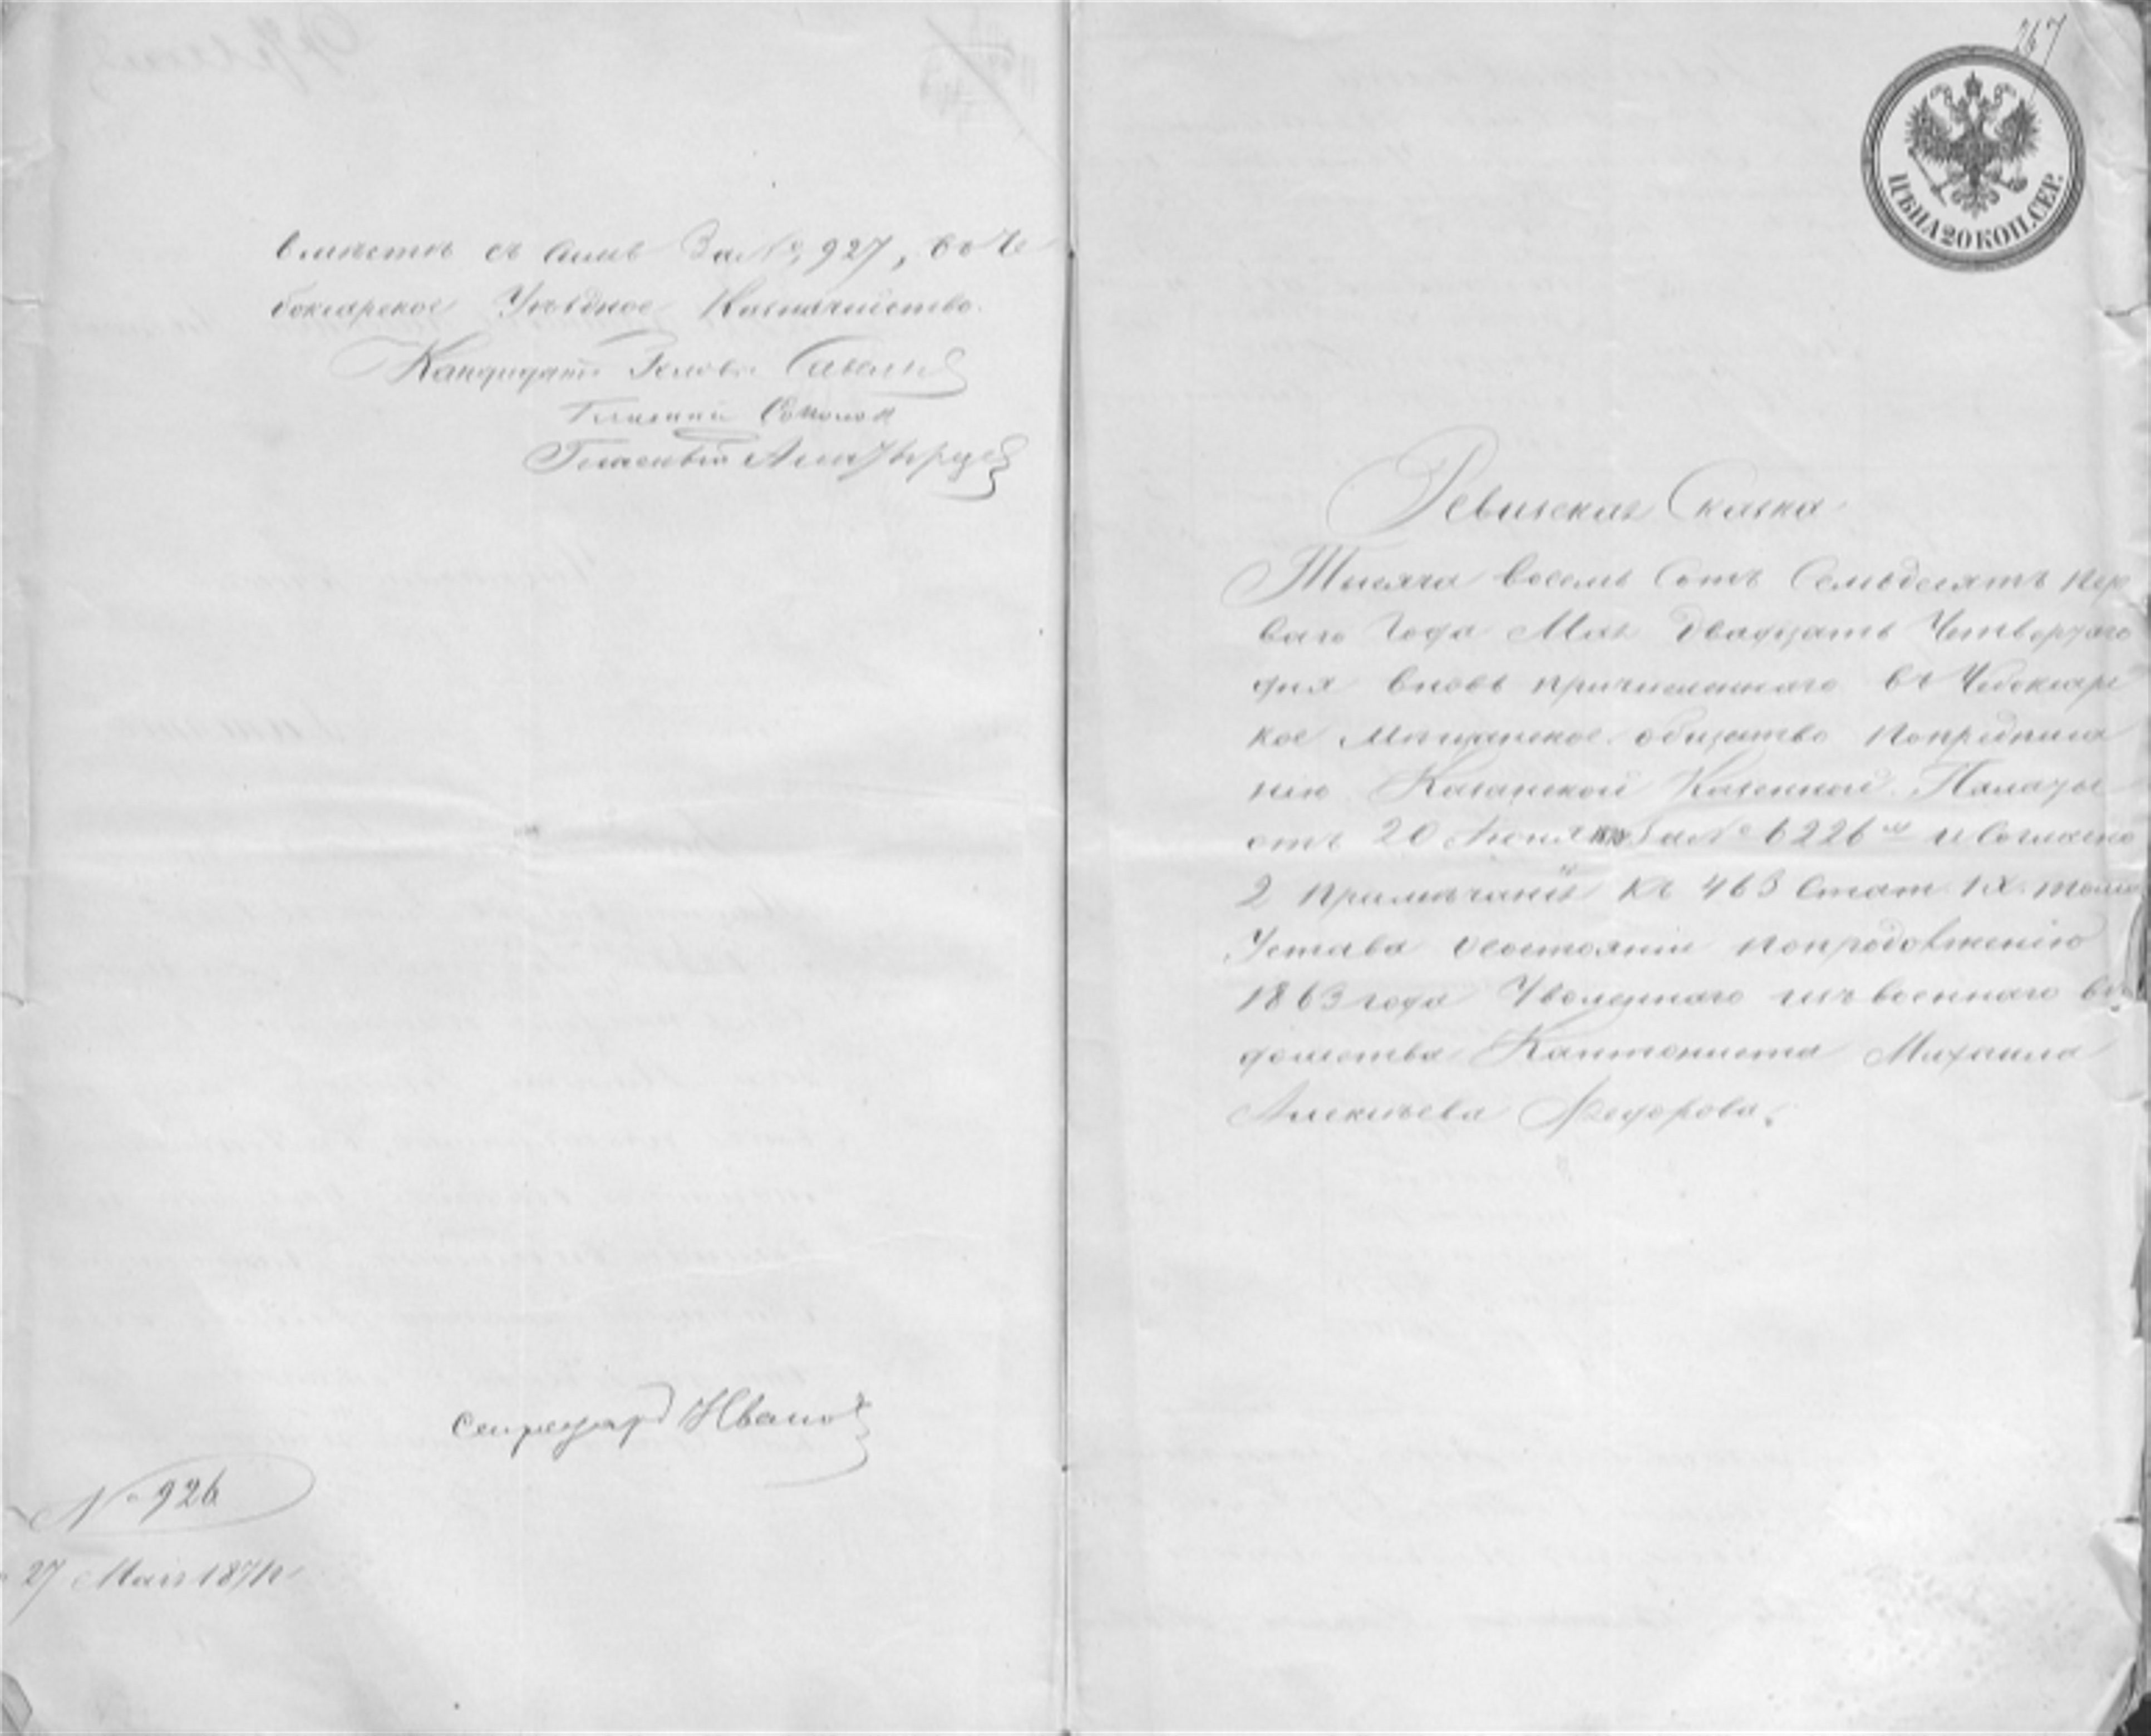 вместѣ съ симъ за № 927, въ Че
боксарское Уѣздное Казначейство.
Кандидатъ Головы
Гласный Соколов
Гласный
Секретарь Ивановъ
№ 926
27 Мая 1871 г
267
ЦѢНА 20 КОП. СЕР.
Ревизская Сказка
Тысяча восемь сотъ семьдесятъ пер
ваго года Мая двадцать четвертаго
дня вновь причисленнаго въ Чебоксарс
кое Мѣщанское общество попредписа
нію Казанской Казенной Палаты
отъ 20 за № 6226 и согласно
2 примѣчанія къ 463 стат. IX. тома
Устава осостояніи попродолженію
1863 года Уволеннаго изъ военнаго вѣ
домства Кантониста Михаила
Алексѣева Федорова.